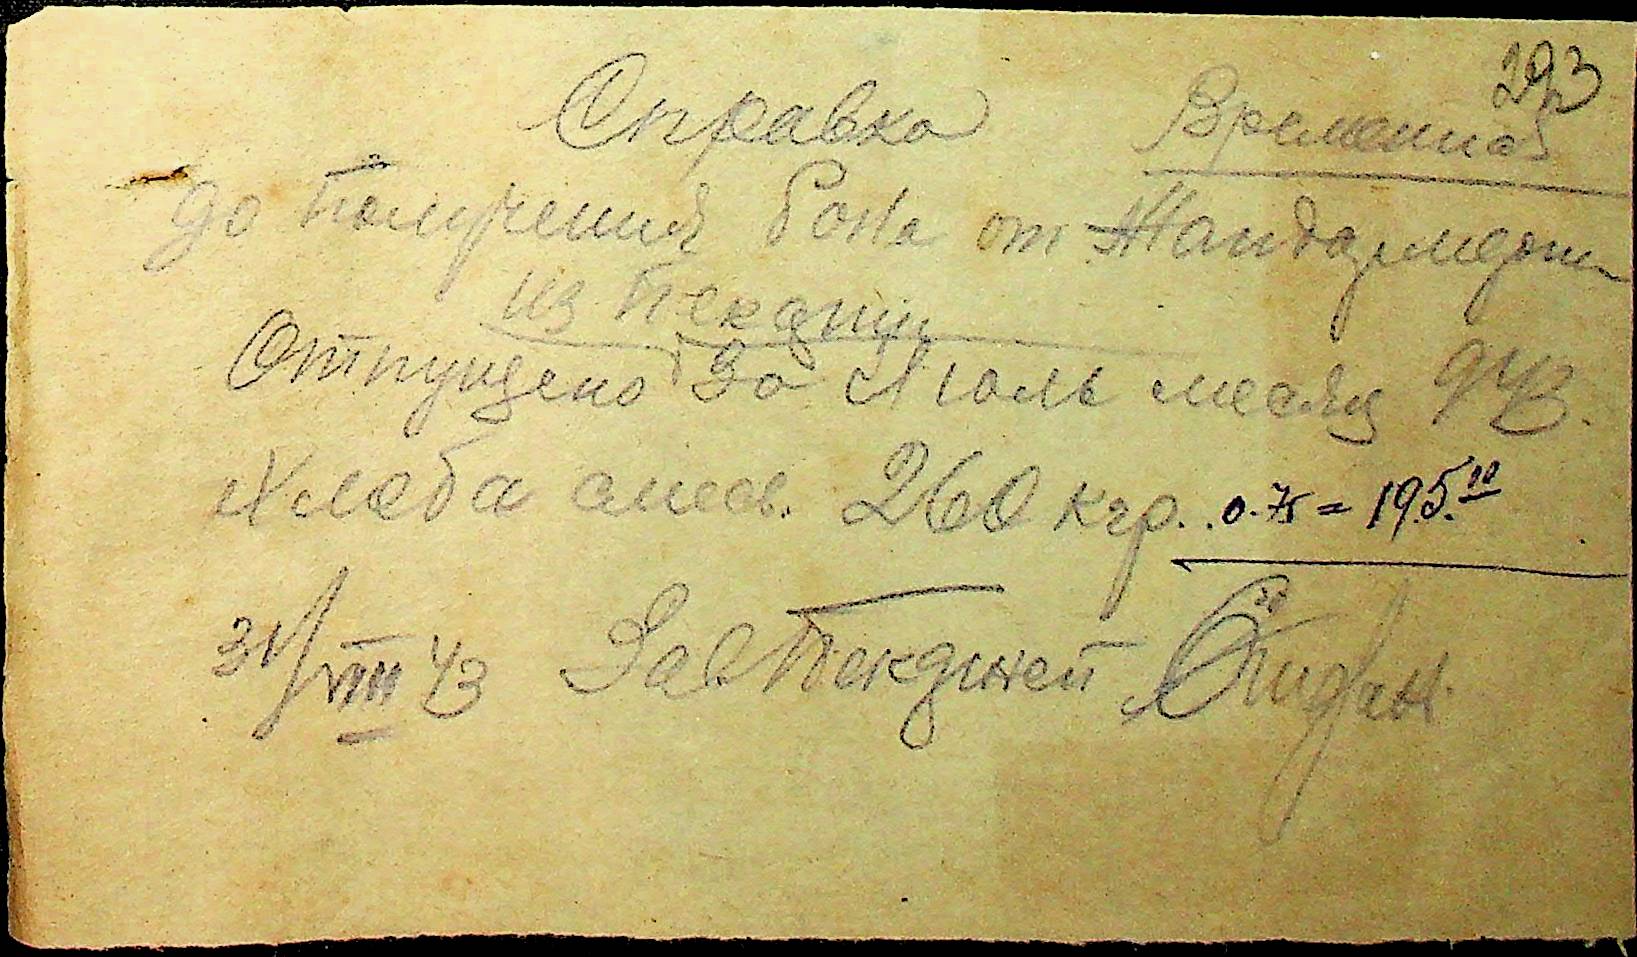 293
Справка Временная
до Получения бона от Жандармерии
из Пекарни
Отпущено За Июль месяц 943.
Хлеба смесь. 260 кгр. . 0.75 = 195.00
31/VIII 43 Зав Пекарней